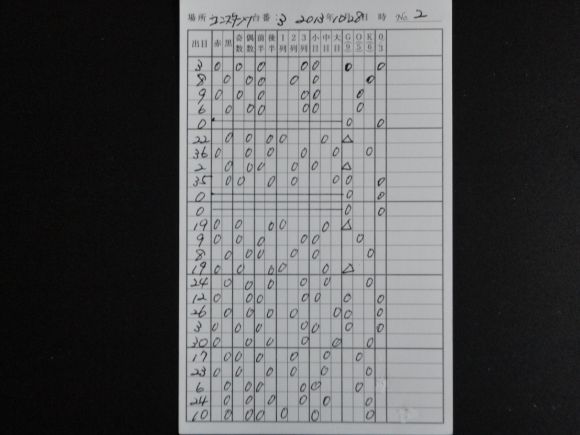 場所 台番 : 3 2013年10月28日 時 No. 2
出目 赤 黒 奇数 偶数 前半 後半 1列 2列 3列 小目 中目 大目 G9 O5 K6 0.3
3 0 0 0 0 0 0 0
8 0 0 0 0 0 0
9 0 0 0 0 0 0
6 0 0 0 0 0 0
0 0 0
22 0 0 0 0 0 △
36 0 0 0 0 0 0
2 0 0 0 0 0 △
35 0 0 0 0 0 0 0
0 0 0
0 0 0
19 0 0 0 0 0 △
9 0 0 0 0 0 0
8 0 0 0 0 0 0
19 0 0 0 0 0 △
24 0 0 0 0 0 0
12 0 0 0 0 0 0 0
26 0 0 0 0 0 0 0
3 0 0 0 0 0 0 0
30 0 0 0 0 0 0
17 0 0 0 0 0 0
23 0 0 0 0 0 0
6 0 0 0 0 0 0
24 0 0 0 0 0 0
10 0 0 0 0 0 0